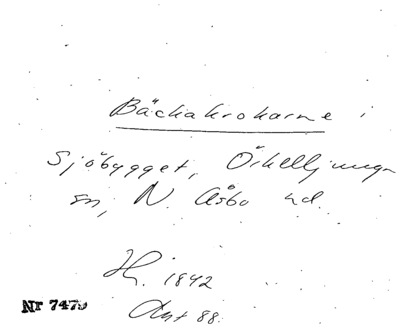 Bäckakrokarne i
Sjöbygget, Örkelljunga
sn, N. Åsbo hd.
H. 1842
Ant 88.
Nr 7479